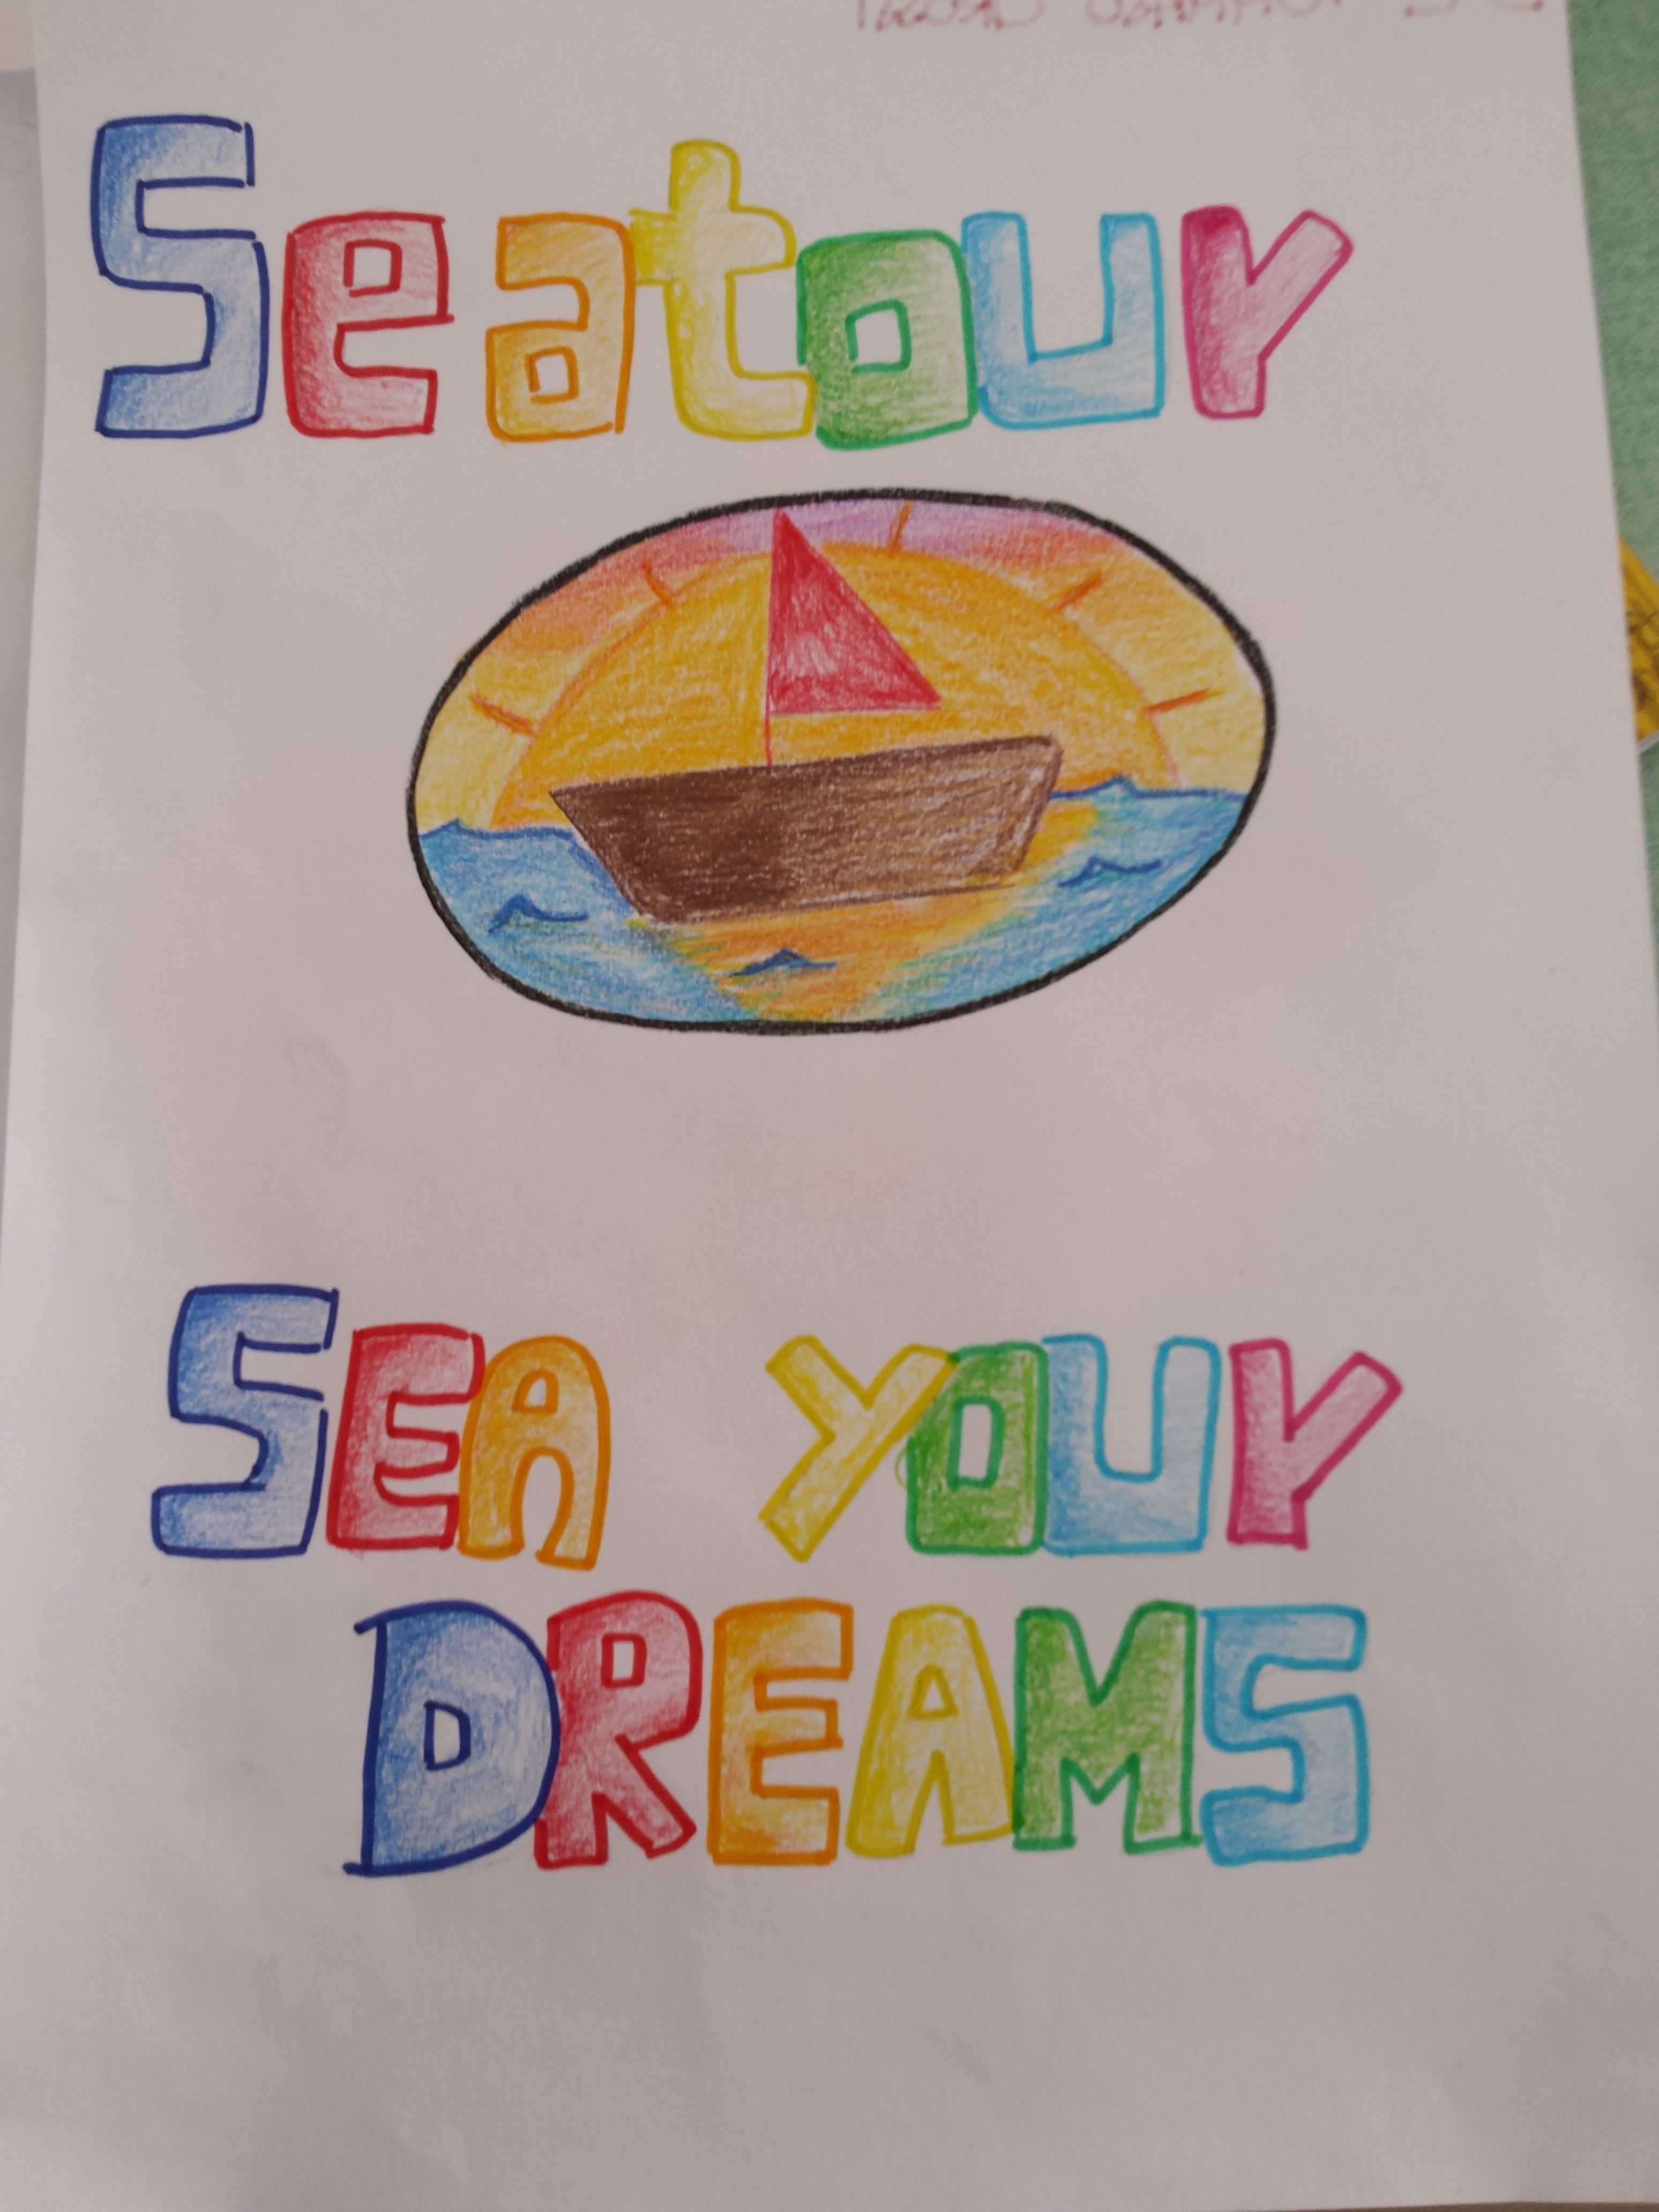 Seatour
SEA YOUr
DREAMS